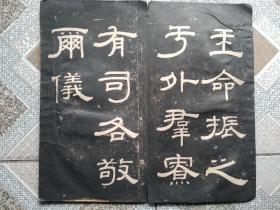 王命振之
于外羣寮
有司各敬
爾儀